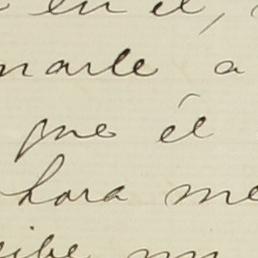 en él,
narle a
que él
hora me
cibe un